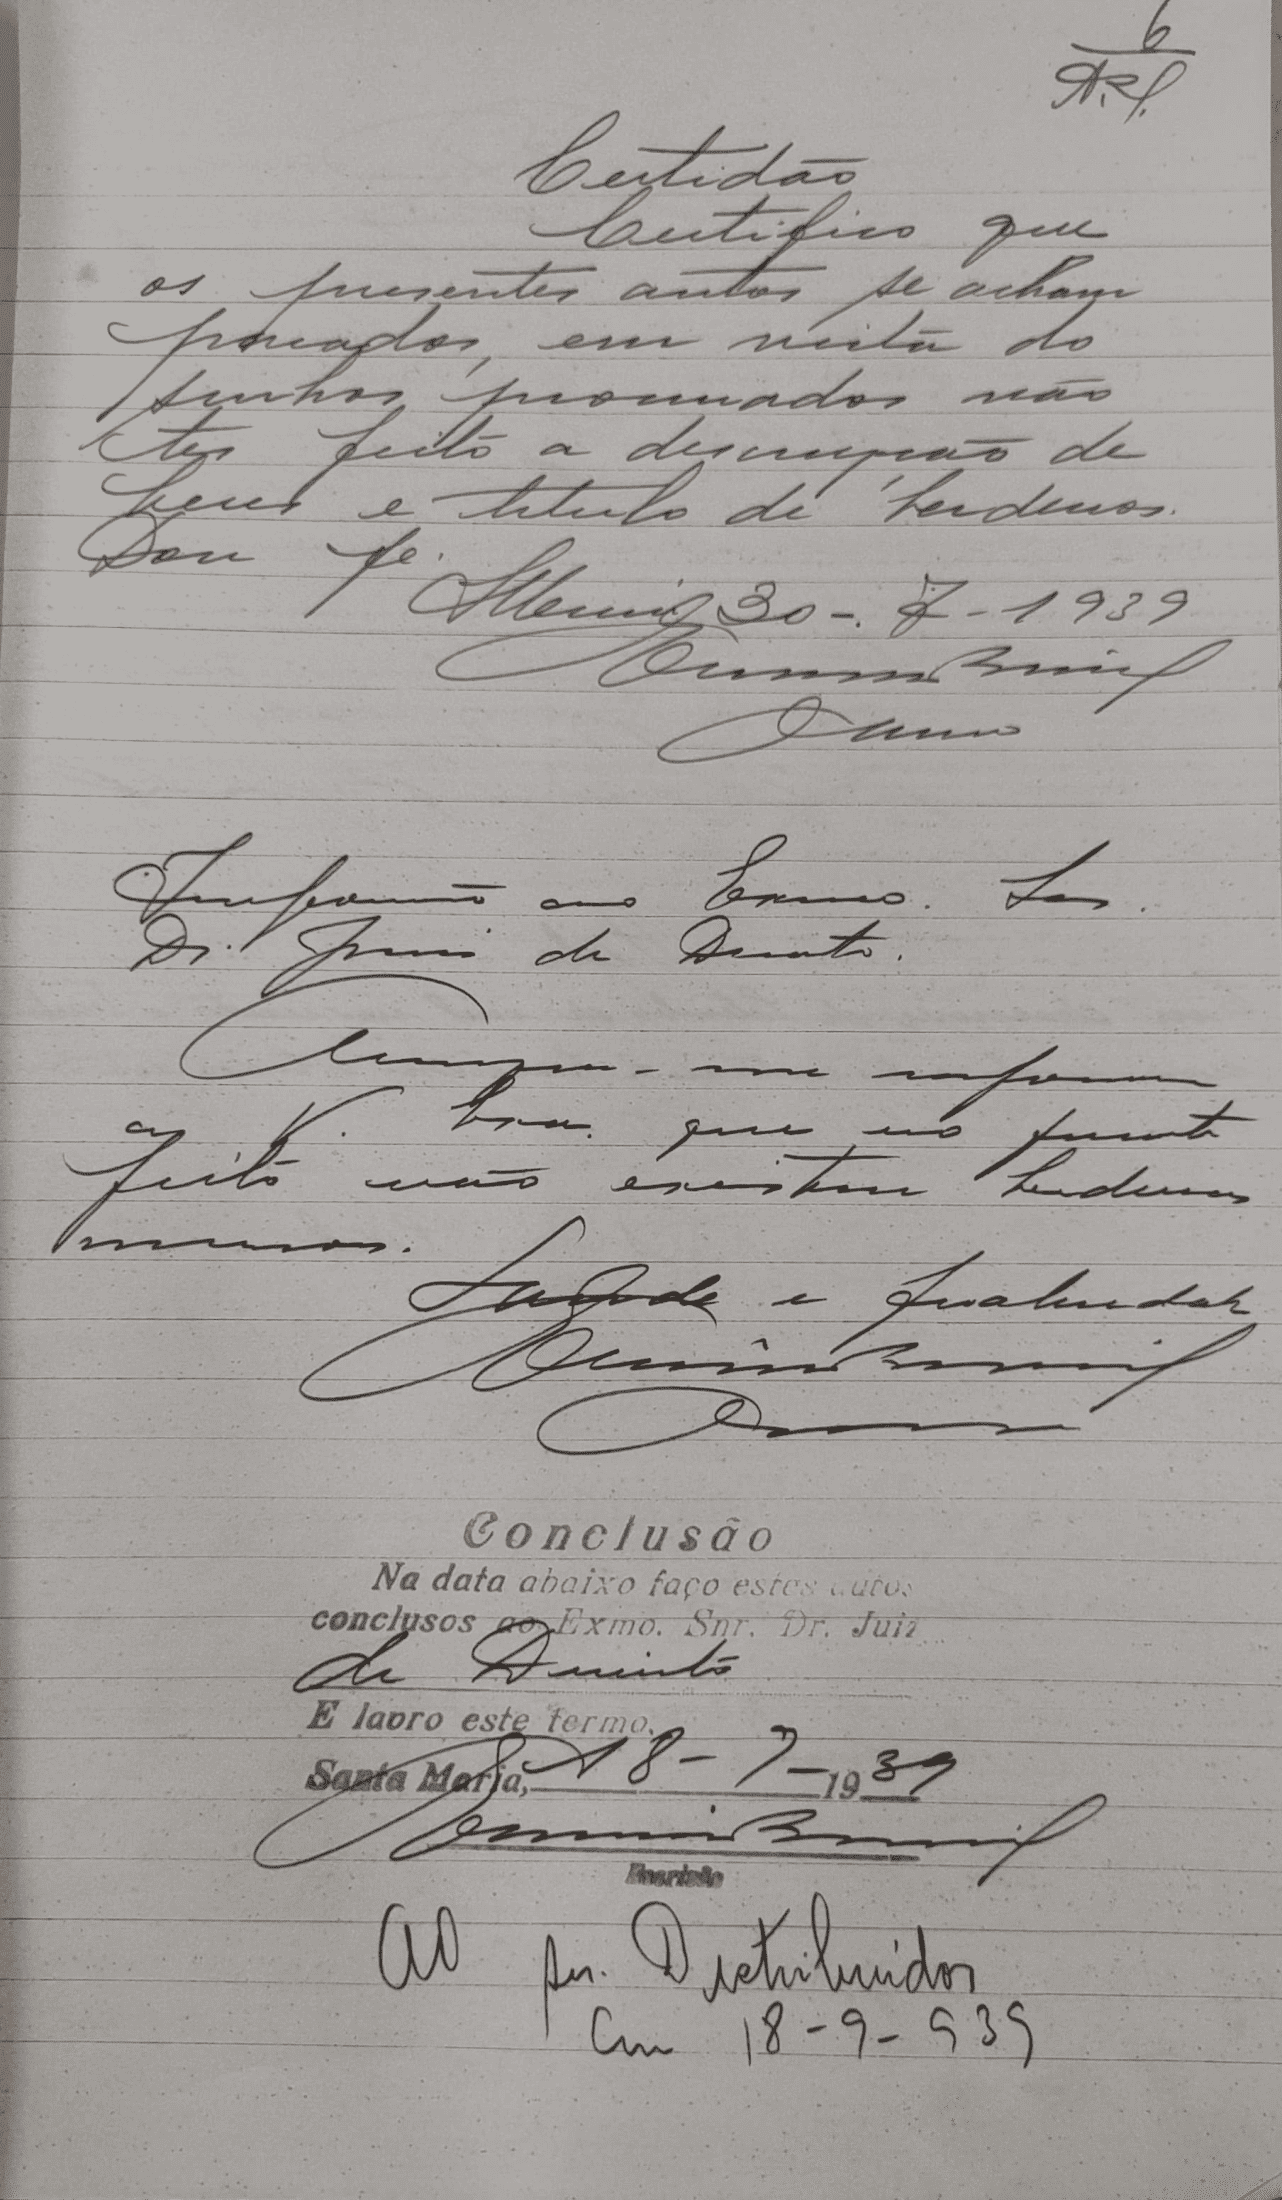 6
Certidão
Certifico que
os presentes autos se acham
parados, em vista do
senhor procurador não
ter feito a descripção de
bens e titulo de herdeiros.
Dou fé.
30-7-1939
Informação ao Exmo. Snr.
Dr. Juiz de Direito.
Cumpre-me informar
a V. Exa. que no presente
feito não existem herdeiros
menores.
Saude e fraternidade
Conclusão
Na data abaixo faço estes autos
conclusos ao Exmo. Snr. Dr. Juiz
de Direito
E lavro este termo.
Santa Maria, 18-7-1939
Escrivão
Ao sr. Distribuidor
Em 18-9-939